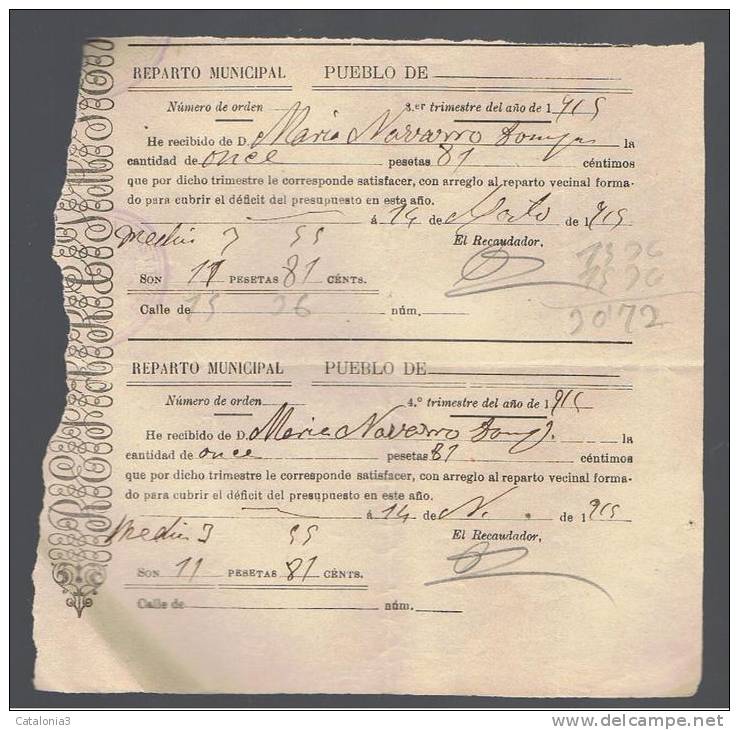 REPARTO MUNICIPAL PUEBLO DE
Número de orden 3.er trimestre del año de 1915
He recibido de D. Maria Navarro la
cantidad de once pesetas 81 céntimos
que por dicho trimestre le corresponde satisfacer, con arreglo al reparto vecinal forma-
do para cubrir el déficit del presupuesto en este año.
á 14 de de 1915
medio 3 55
El Recaudador,
SON 11 PESETAS 81 CÉNTS.
15 36
15 36
Calle de 15 36 núm.
30'72
REPARTO MUNICIPAL PUEBLO DE
Número de orden 4.º trimestre del año de 1915
He recibido de D. Maria Navarro la
cantidad de once pesetas 81 céntimos
que por dicho trimestre le corresponde satisfacer, con arreglo al reparto vecinal forma-
do para cubrir el déficit del presupuesto en este año.
á 14 de N. de 1915
medio 3 55
El Recaudador,
SON 11 PESETAS 81 CÉNTS.
Calle de núm.
Catalonia3
www.delcampe.net